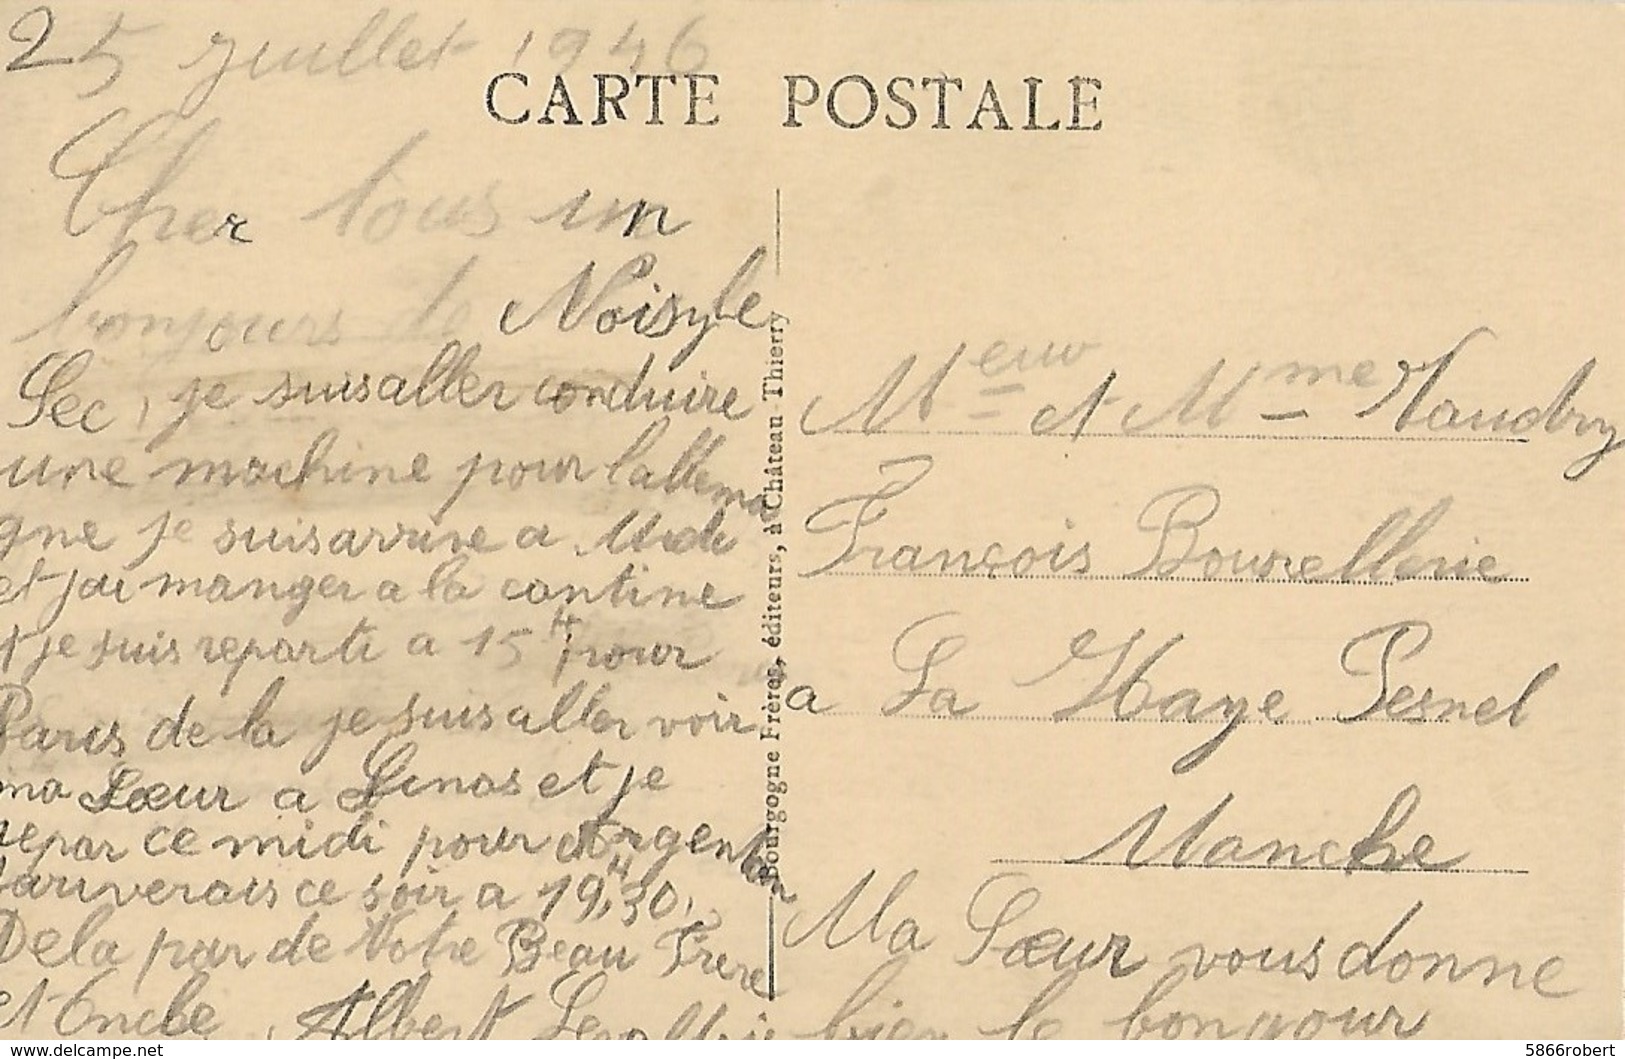 25 Juillet 1946
CARTE POSTALE
Cher tous un
bonjours de Noisy le
Sec, je suis aller conduire
une machine pour lallema
gne je suis arrive a Midi
et jai manger a la cantine
et je suis reparti a 15 H pour
Paris de la je suis aller voir
ma Sœur a Linas et je
repar ce midi pour Argentan
jariverais ce soir a 19H,30.
De la par de Votre Beau Frere
et Oncle, Albert
Bourgogne Frères, éditeurs, à Château Thierry
Meur et Mme
François
a La Haye Pesnel
Manche
Ma Sœur vous donne
bien le bonjour
5866robert